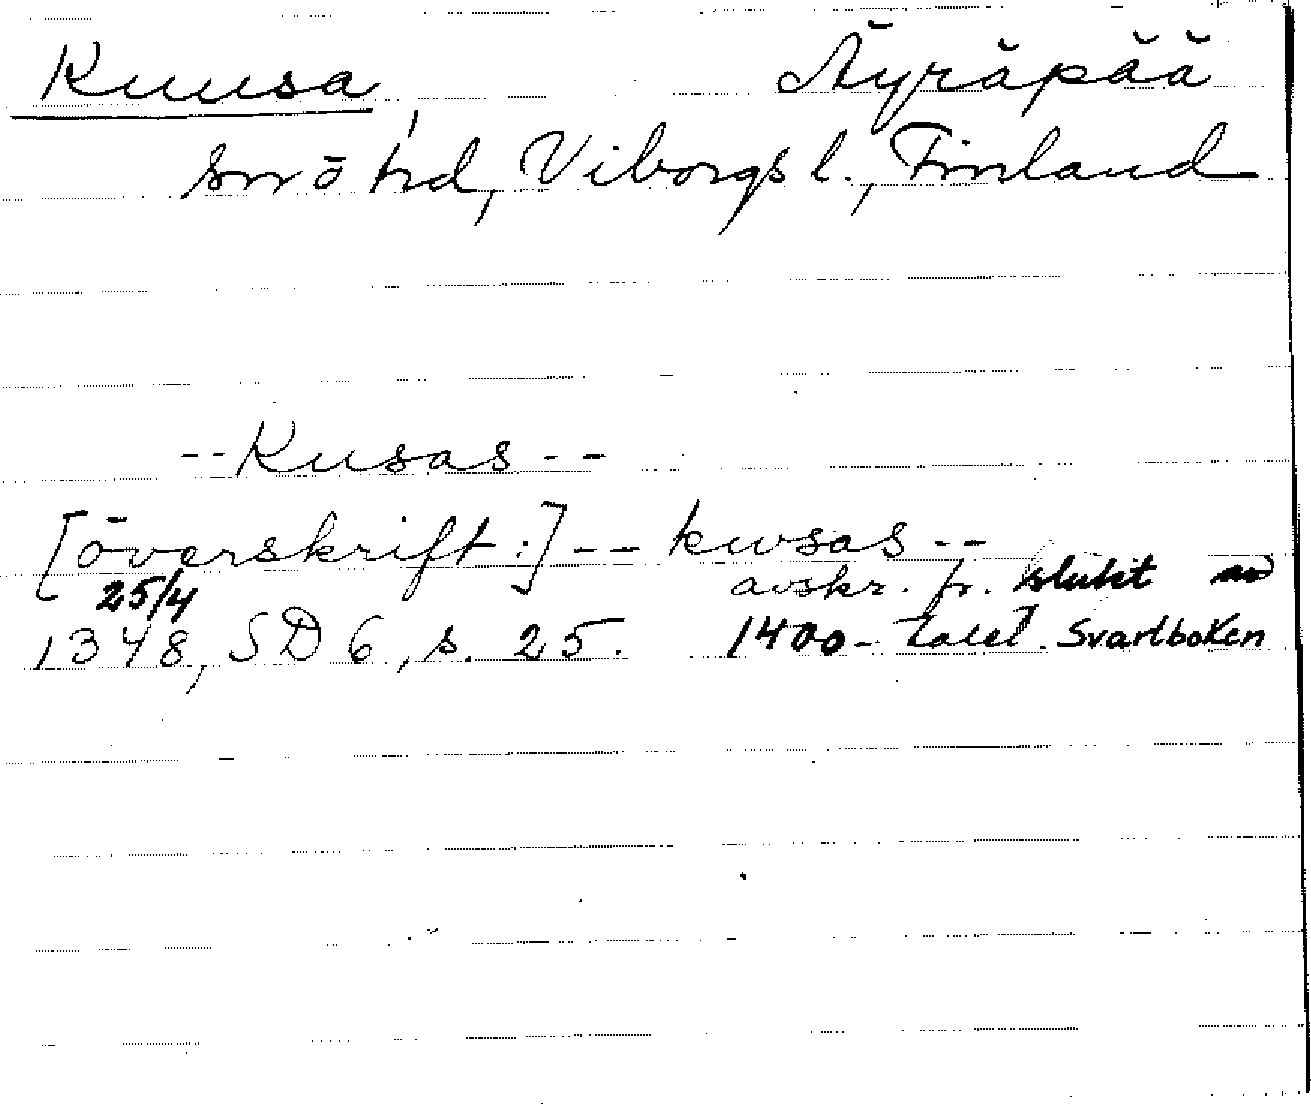 Kuusa Äyräpää
sn o hd, Viborgs l., Finland
--Kusas--
[överskrift:]-- kwsas --
25/4 avskr. fr. slutet av
1348, SD 6, s. 25. 1400-talet. Svartboken